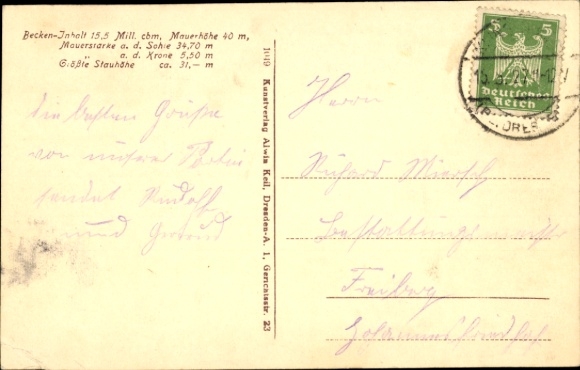 Becken-Inhalt 15,5 Mill. cbm, Mauerhöhe 40 m,
Mauerstärke a. d. Sohle 34,70 m
„ a. d. Krone 5,50 m
Größte Stauhöhe ca. 31,— m
Die besten Grüße
von unserer Partie
sendet Rudolf
und
1049 Kunstverlag Alwin Keil, Dresden-A. 1, Gerichtsstr. 23
5 5
Deutsches
Reich
Herrn
Richard
Bestattungsmeister
Freiberg
Johannesfriedhof